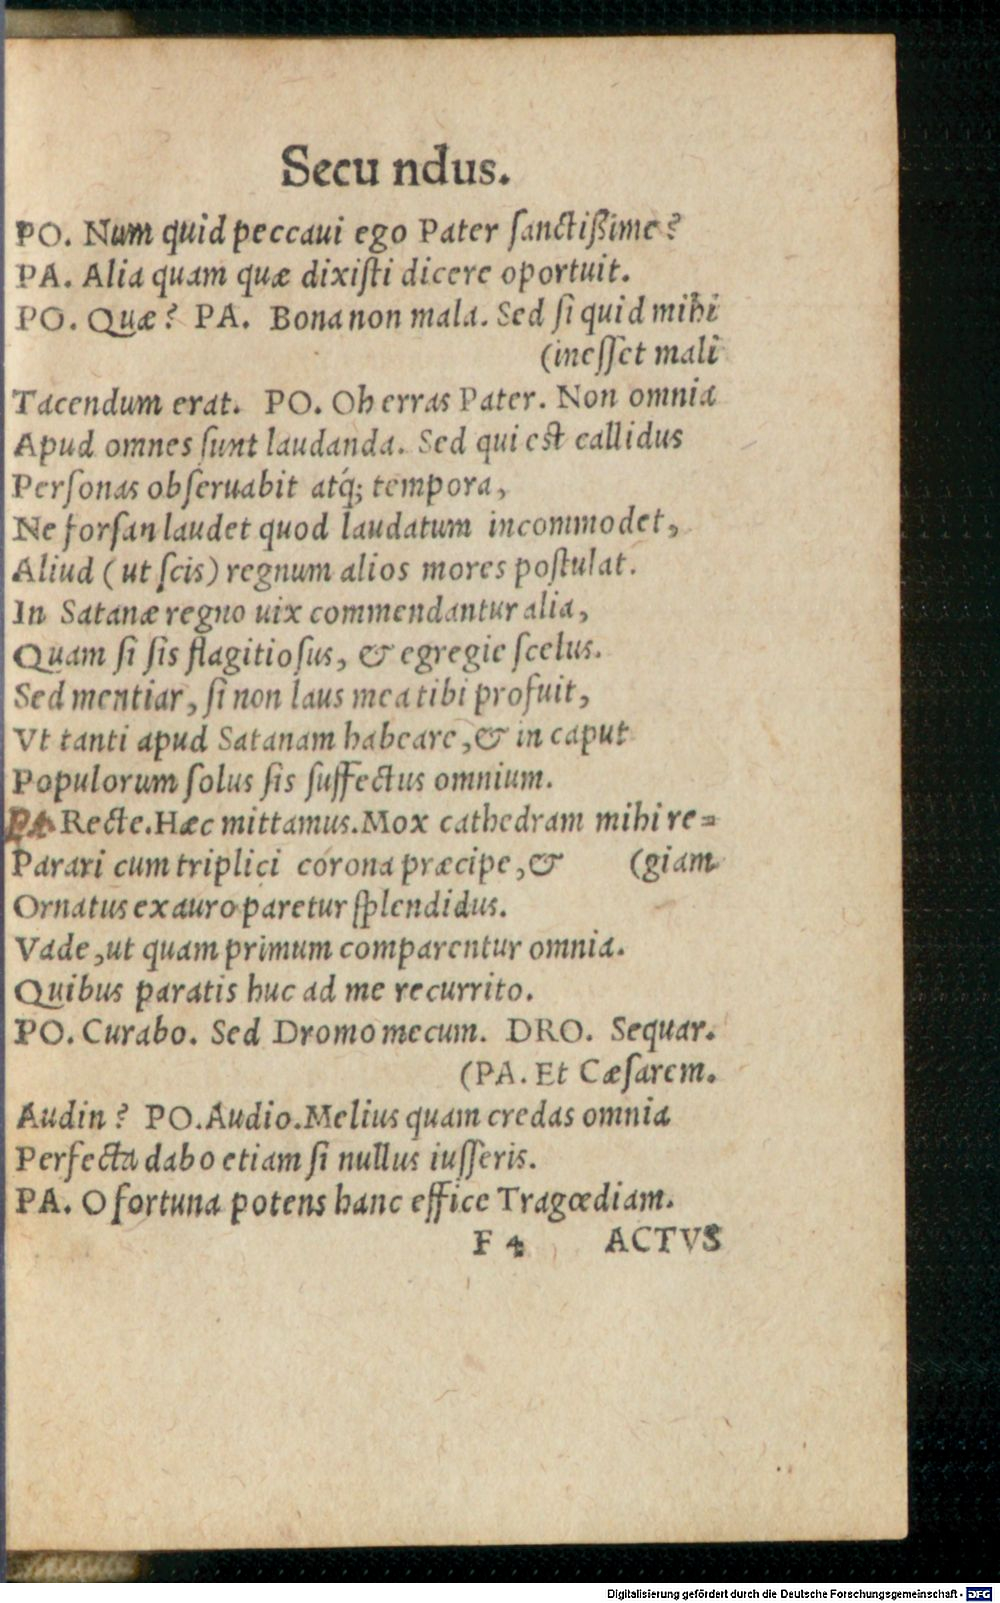 Secu ndus.
PO. Num quid peccaui ego Pater ſanctiſsime?
PA. Alia quam quæ dixiſti dicere oportuit.
PO. Quæ? PA. Bona non mala. Sed ſi quid mihi
(ineſſet mali
Tacendum erat. PO. Oh erras Pater. Non omnia
Apud omnes ſunt laudanda. Sed qui est callidus
Perſonas obſeruabit atq́; tempora,
Ne forſan laudet quod laudatum incommodet,
Aliud (ut ſcis) regnum alios mores poſtulat.
In Satanæ regno uix commendantur alia,
Quam ſi ſis flagitioſus, & egregie ſcelus.
Sed mentiar, ſi non laus mea tibi profuit,
Vt tanti apud Satanam habeare, & in caput
Populorum ſolus ſis ſuffectus omnium.
PA Recte. Hæc mittamus. Mox cathedram mihi re=
Parari cum triplici corona præcipe, & (giam
Ornatus ex auro paretur ſplendidus.
Vade, ut quam primum comparentur omnia.
Quibus paratis huc ad me recurrito.
PO. Curabo. Sed Dromo mecum. DRO. Sequar.
(PA. Et Cæſarem.
Audin? PO. Audio. Melius quam credas omnia
Perfecta dabo etiam ſi nullus iuſſeris.
PA. O fortuna potens hanc effice Tragœdiam.
F 4 ACTVS
Digitalisierung gefördert durch die Deutsche Forschungsgemeinschaft - DFG